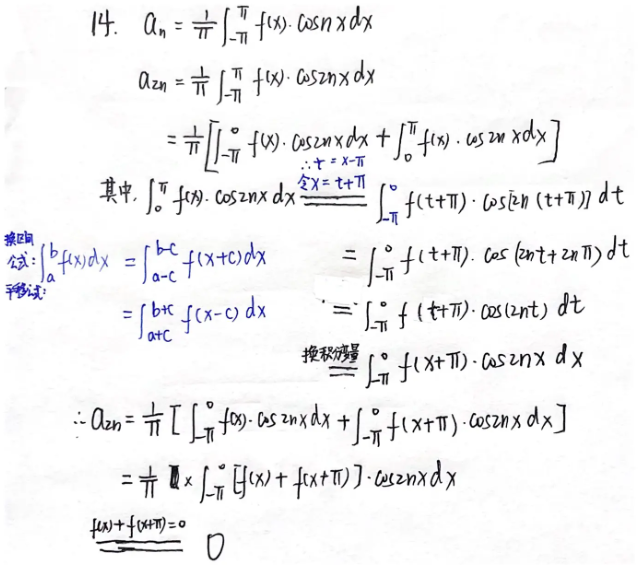 14. aₙ = 1/π ∫_{-π}^{π} f(x)·cosnxdx
a₂ₙ = 1/π ∫_{-π}^{π} f(x)·cos2nxdx
= 1/π [∫_{-π}^{0} f(x)·cos2nxdx + ∫_{0}^{π} f(x)·cos2nxdx]
∴t = x-π
其中, ∫_{0}^{π} f(x)·cos2nxdx 令x=t+π ═══ ∫_{-π}^{0} f(t+π)·cos[2n(t+π)]dt
换区间
公式: ∫_{a}^{b} f(x)dx = ∫_{a-c}^{b-c} f(x+c)dx
平移式:
= ∫_{a+c}^{b+c} f(x-c)dx
= ∫_{-π}^{0} f(t+π)·cos(2nt+2nπ)dt
= ∫_{-π}^{0} f(t+π)·cos(2nt)dt
换积分变量 ═══ ∫_{-π}^{0} f(x+π)·cos2nx dx
∴a₂ₙ = 1/π [∫_{-π}^{0} f(x)·cos2nxdx + ∫_{-π}^{0} f(x+π)·cos2nxdx]
= 1/π × ∫_{-π}^{0} [f(x)+f(x+π)]·cos2nxdx
f(x)+f(x+π)=0 ═══ 0